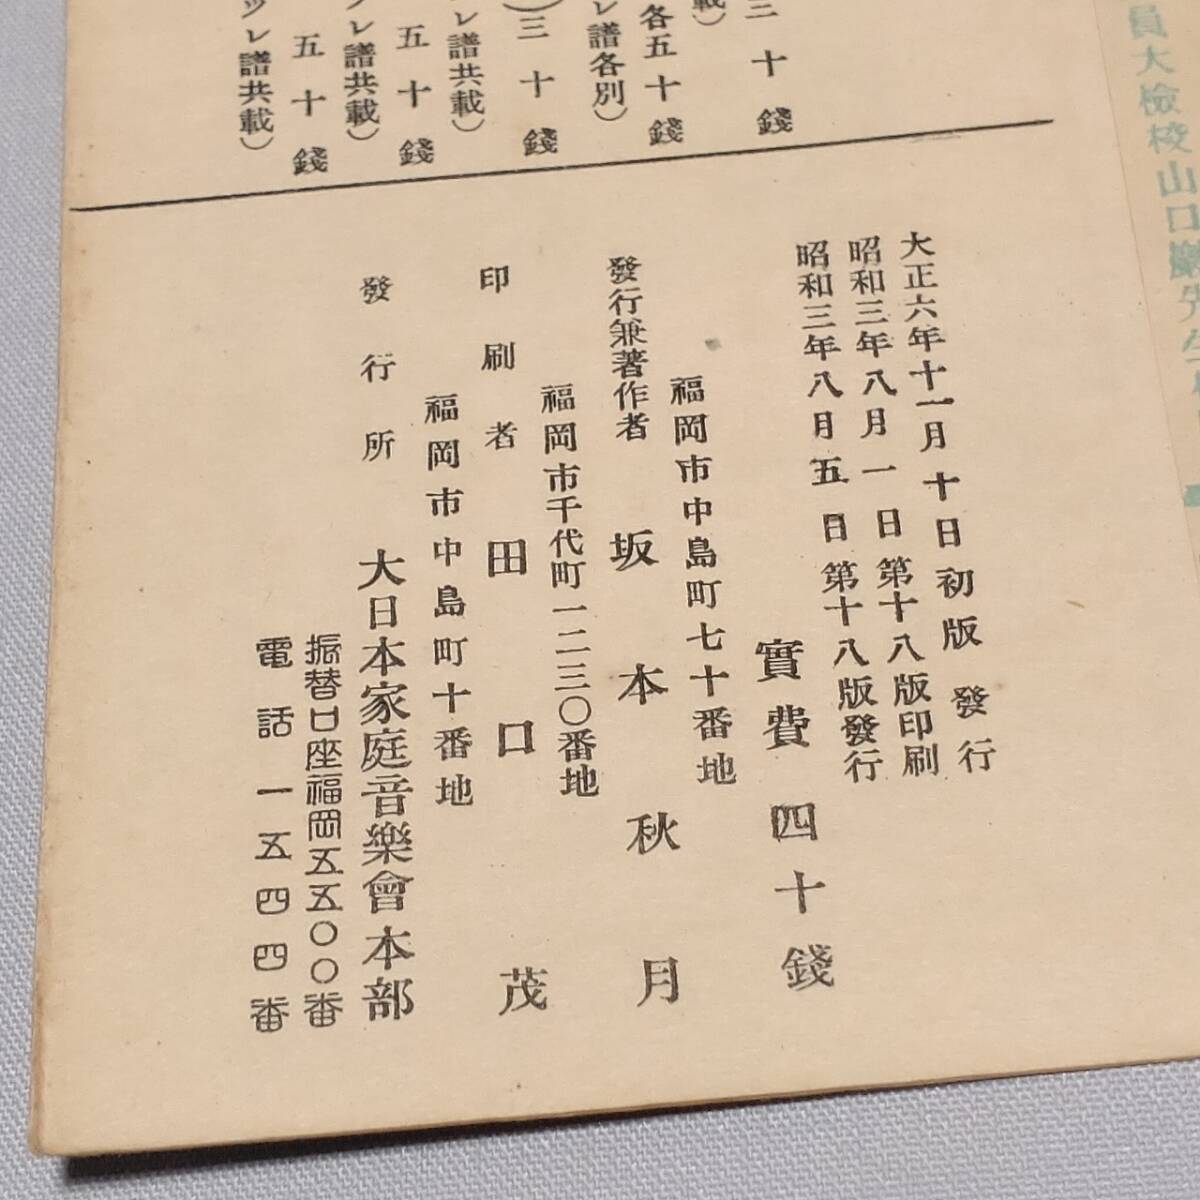 員大檢校山口巖先生
三十錢
載)
各五十錢
レ譜各別)
)三十錢
レ譜共載)
五十錢
レ譜共載)
五十錢
ツレ譜共載)
大正六年十一月十日初版發行
昭和三年八月一日第十八版印刷
昭和三年八月五日第十八版發行
實費四十錢
福岡市中島町七十番地
發行兼著作者 坂本秋月
福岡市千代町一二三〇番地
印刷者 田口茂
福岡市中島町十番地
發行所 大日本家庭音樂會本部
振替口座福岡五五〇〇番
電話一五四四番